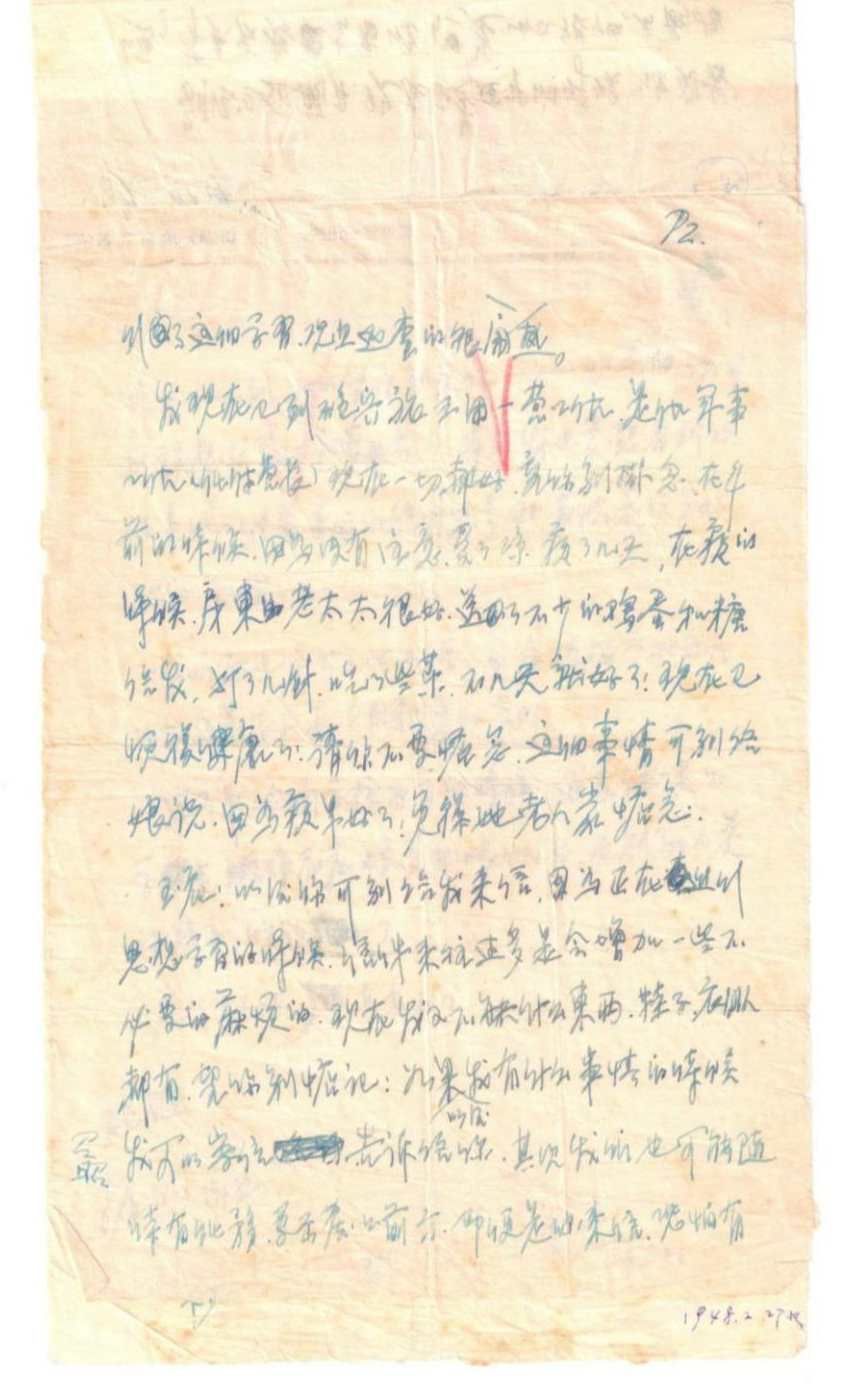 P2.
现在
我现在已到 一营工作,是做军事
工作(作 营长)现在一切都好,请你别挂念,在年
前的时候,因为没有注意,受了凉,病了几天,在病的
时候,房东的老太太很好,送了不少的鸡蛋和糖
给我,打了几针,吃了些药,不几天就好了!现在已
恢复健康了,请你不要惦念,这个事情可别给
娘说,因为病早好了,免得她老人家惦念。
以后你可别给我来信,因为正在
思想学习的时候,信件来往过多是会增加一些不
必要的麻烦的,现在我又不缺什么東西,鞋子,衣服
都有,望你别惦记:如果我有什么事情的时候
以后
我可以写信 告诉给你,其次我们也可能随
时有转移, 前方,即便是你来信,恐怕有
1948.2.27